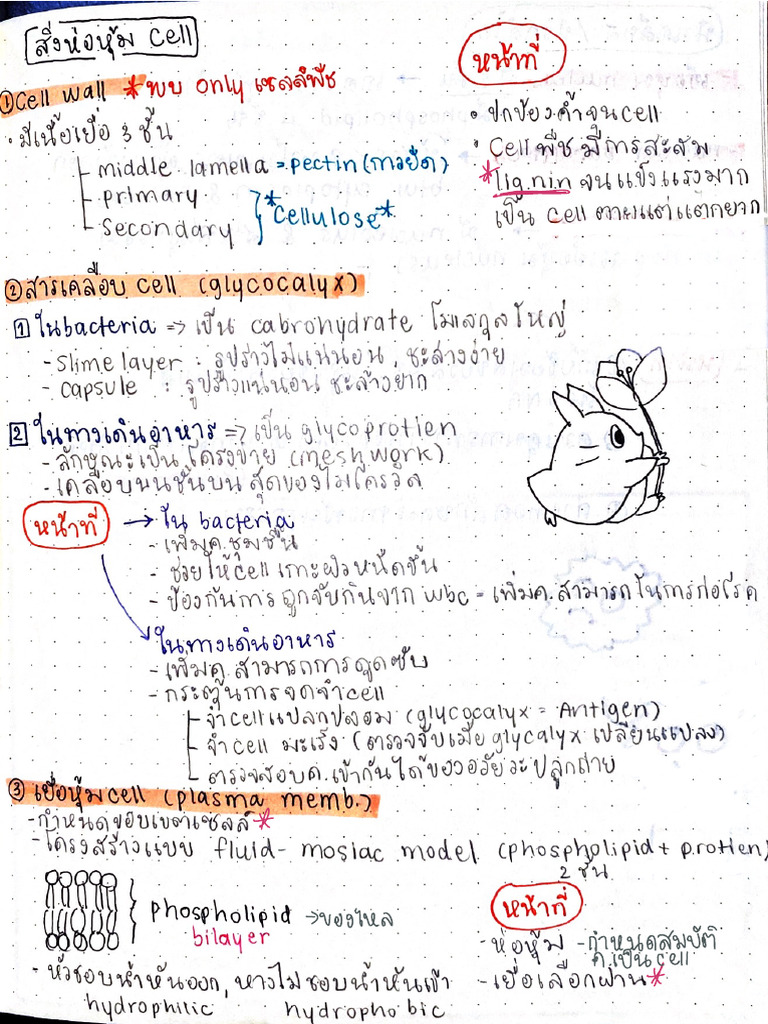 สิ่งห่อหุ้ม cell
หน้าที่
① Cell wall *พบ only เซลล์พืช
• มีเนื้อเยื่อ 3 ชั้น
middle lamella = pectin (กาวยึด)
primary
secondary
*Cellulose*
• ปกป้องค้ำจุน cell
• Cell พืช มีการสะสม
*lignin จนแข็งแรงมาก
เป็น cell ตายแต่แตกยาก
② สารเคลือบ cell (glycocalyx)
1 ใน bacteria => เป็น cabrohydrate โมเลกุลใหญ่
- slime layer : รูปร่างไม่แน่นอน, ชะล้างง่าย
- capsule : รูปร่างแน่นอน ชะล้างยาก
2 ในทางเดินอาหาร => เป็น glycoprotien
- ลักษณะเป็นโครงข่าย (meshwork)
- เคลือบบนชั้นบนสุดของไมโครวิลิ
หน้าที่
→ ใน bacteria
- เพิ่มค.ชุ่มชื้น
- ช่วยให้ cell เกาะผิวหนืดขึ้น
- ป้องกันการถูกจับกินจาก wbc = เพิ่มค.สามารถในการก่อโรค
ในทางเดินอาหาร
- เพิ่มค.สามารถการดูดซับ
- กระตุ้นการจดจำ cell
จำ cell แปลกปลอม (glycocalyx = Antigen)
จำ cell มะเร็ง (ตรวจจับเมื่อ glycalyx เปลี่ยนแปลง)
ตรวจสอบค.เข้ากันได้ของอวัยวะปลูกถ่าย
③ เยื่อหุ้ม cell (plasma memb.)
- กำหนดขอบเขตเซลล์*
- โครงสร้างแบบ fluid- mosiac model (phospholipid + protien)
2 ชั้น
phospholipid → ของไหล
bilayer
- หัวชอบน้ำหันออก, หางไม่ชอบน้ำหันเข้า
hydrophilic hydrophobic
หน้าที่
- ห่อหุ้ม - กำหนดสมบัติ
ค.เป็น cell
- เยื่อเลือกผ่าน*